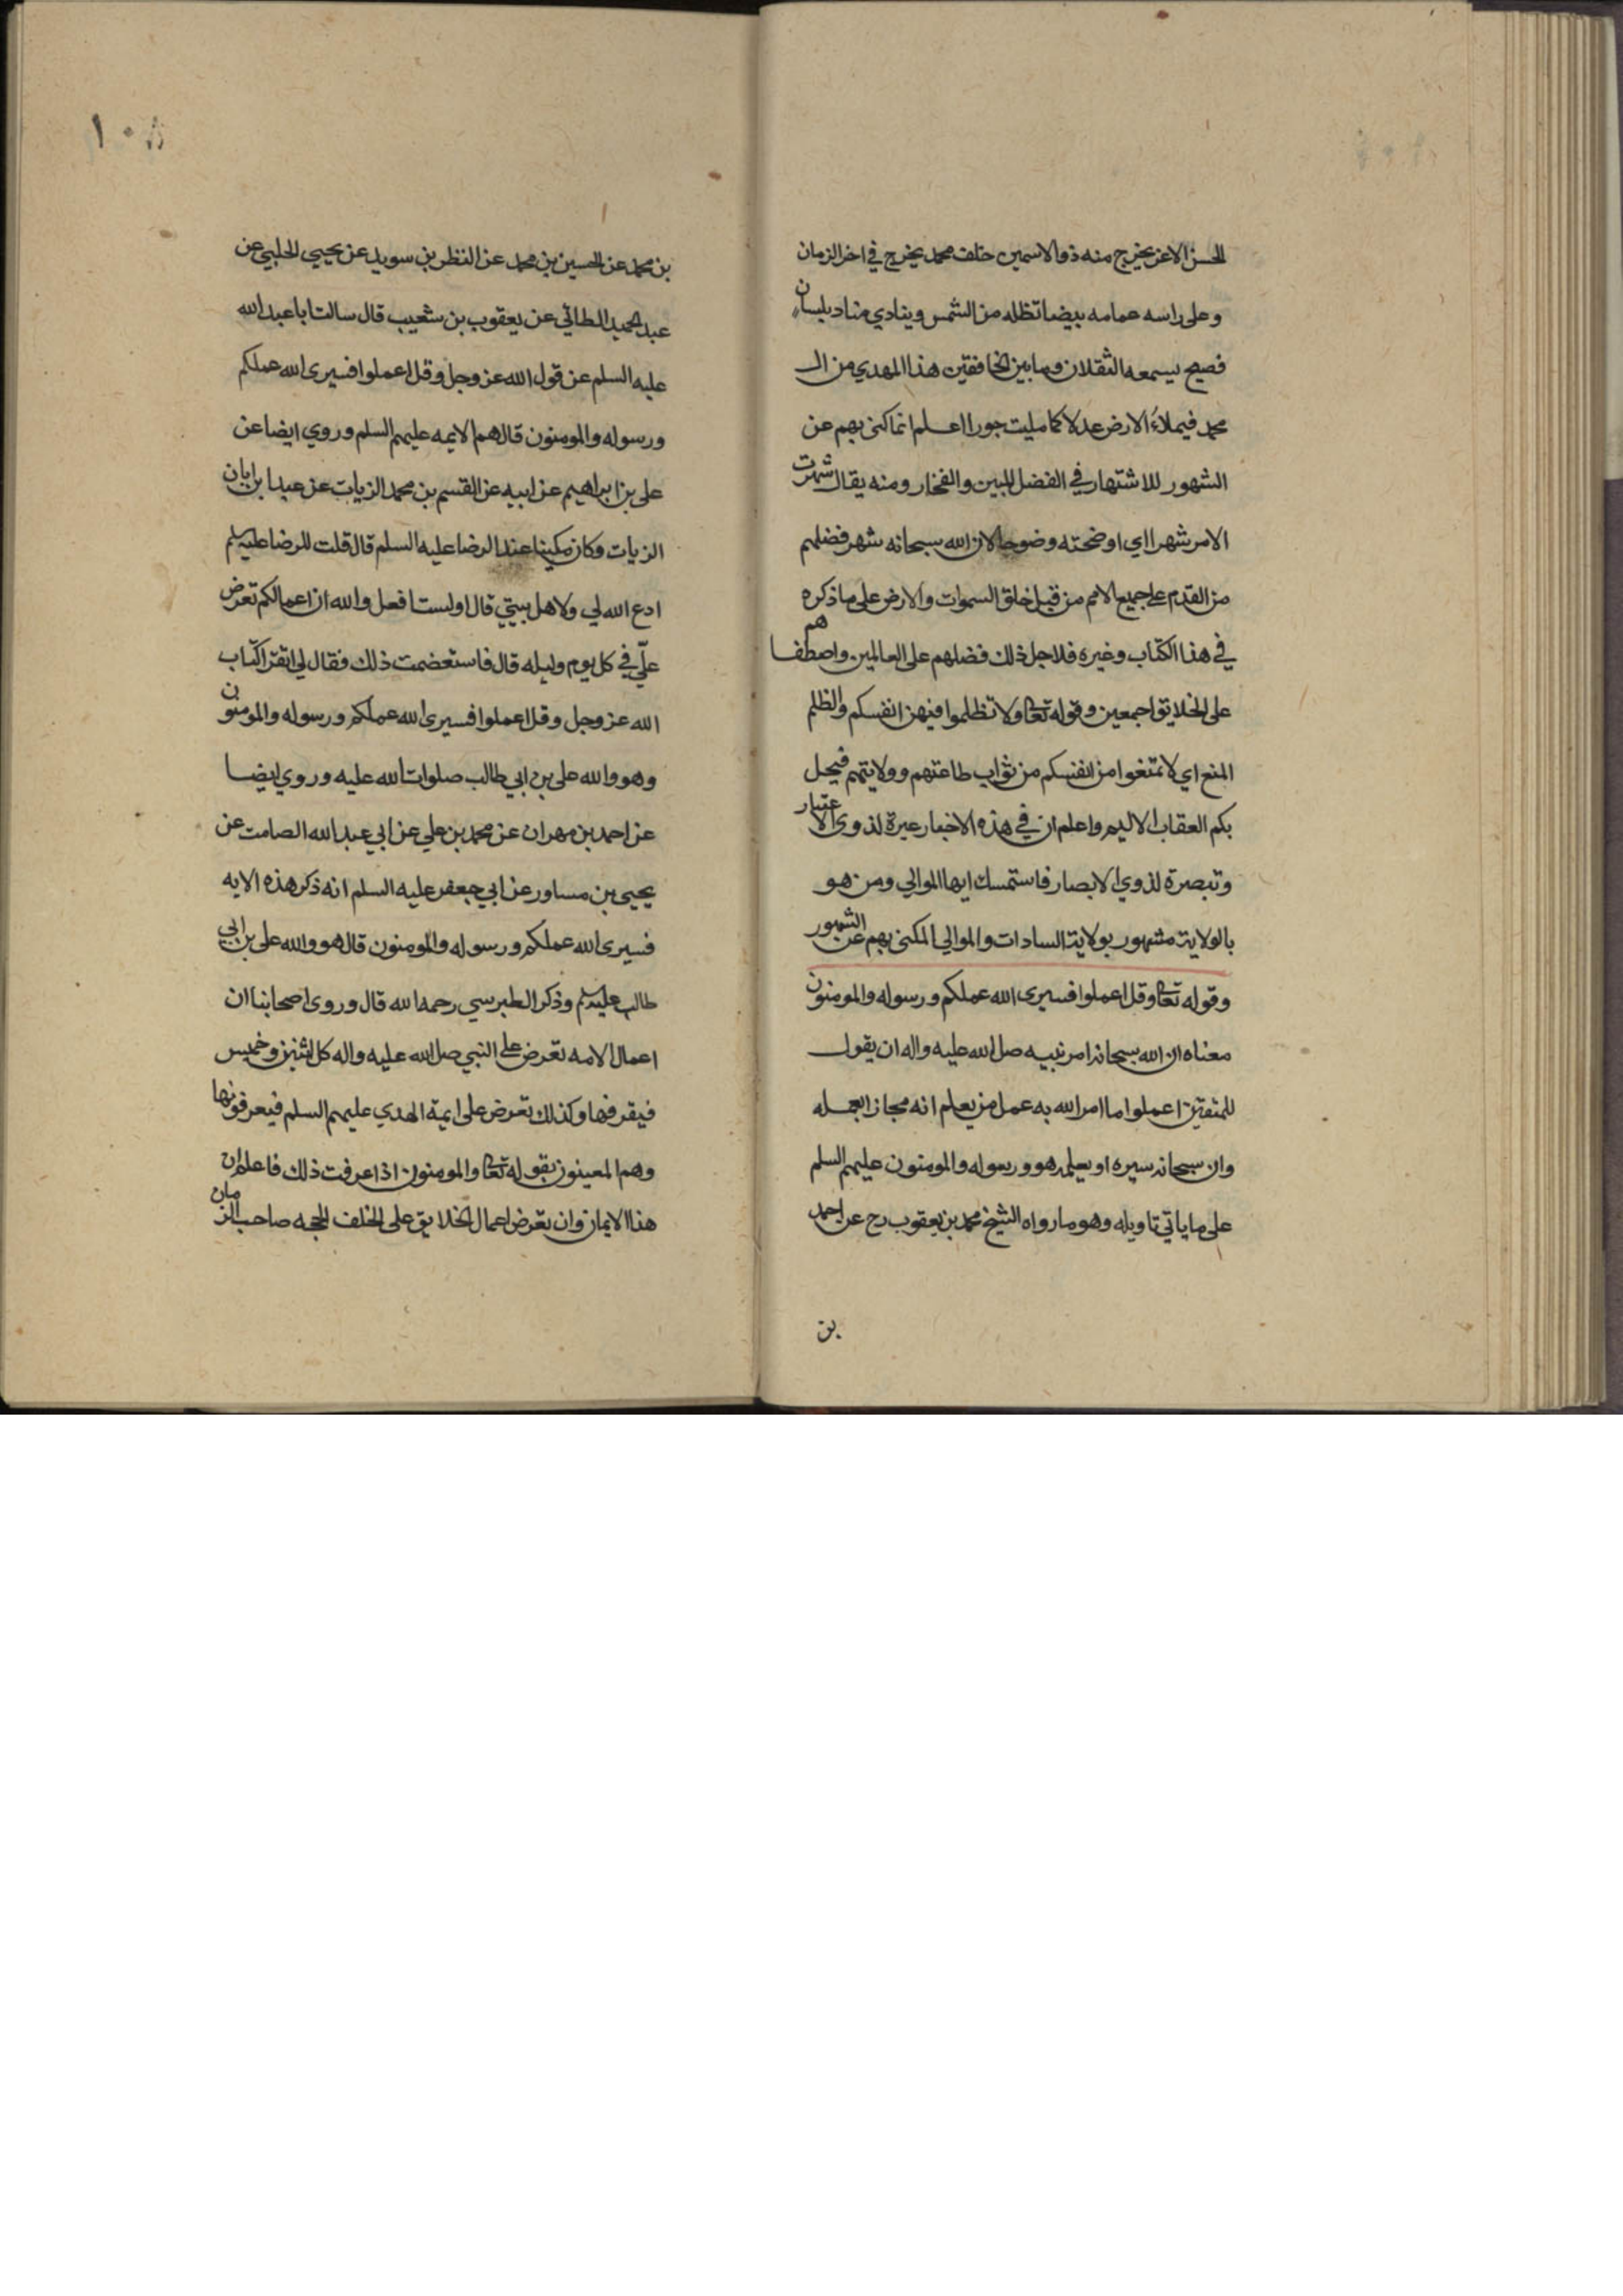 الحسن الاعز يخرج منه ذو الاسمين خلف محمد يخرج في اخر الزمان
وعلى راسه عمامه بيضا تظله من الشمس وينادي مناد بلسان
فصيح يسمعه الثقلان وما بين الخافقين هذا المهدي من ال
محمد فيملاء الارض عدلا كما مليت جورا اعلم انما كنى بهم عن
الشهور للاشتهار في الفضل المبين والفخار ومنه يقال شهرت
الامر شهرا اي اوضحته وضوحا لان الله سبحانه شهر فضلهم
من القدم على جميع الامم من قبل خلق السموات والارض على ما ذكره
في هذا الكتاب وغيره فلاجل ذلك فضلهم على العالمين واصطفاهم
على الخلايق اجمعين وقوله تعا ولا تظلموا فيهن انفسكم والظلم
المنع اي لا تمتغوا من انفسكم من ثواب طاعتهم وولايتهم فيحل
بكم العقاب الاليم واعلم ان في هذه الاخبار عبرة لذوى الاعتبار
وتبصرة لذوي الابصار فاستمسك ايها الموالي ومن هو
بالولاية مشهور بولاية السادات والموالي المكنى بهم عن الشهور
وقوله تعا وقل اعملوا فسيرى الله عملكم ورسوله والمومنون
معناه ان الله سبحانه امر نبيه صل الله عليه واله ان يقول
للمتقين اعملوا ما امر الله به عمل من يعلم انه مجاز ابعمله
وان سبحانه سيره او يعلمه هو ورسوله والمومنون عليهم السلم
على ما ياتي تاويله وهو ما رواه الشيخ محمد بن يعقوب رح عن احمد
بن
١٠٨
بن محمد عن الحسين بن محمد عن النظر بن سويد عن يحيي الحلبي عن
عبد الحميد الطائي عن يعقوب بن شعيب قال سالت ابا عبد الله
عليه السلم عن قول الله عز وجل وقل اعملوا فسيرى الله عملكم
ورسوله والمومنون قال هم الايمه عليهم السلم وروي ايضا عن
على بن ابراهيم عن ابيه عن القسم بن محمد الزيات عن عبد ابن ابان
الزيات وكان مكينا عند الرضا عليه السلم قال قلت للرضا عليه سلم
ادع الله لي ولاهل بيتي قال اولست افعل والله ان اعمالكم تعرض
علّي في كل يوم وليله قال فاستعضمت ذلك فقال لي اتقرا كتاب
الله عز وجل وقل اعملوا فسيرى الله عملكم ورسوله والمومنون
وهو والله على بن ابي طالب صلوات الله عليه وروي ايضا
عن احمد بن مهران عن محمد بن علي عن ابي عبد الله الصامت عن
يحيى بن مساور عن ابي جعفر عليه السلم انه ذكر هذه الايه
فسيرى الله عملكم ورسوله والمومنون قال هو والله على بن ابي
طالب عليه سلم وذكر الطبرسي رحمه الله قال وروى اصحابنا ان
اعمال الامه تعرض على النبي صل الله عليه واله كل اثنين وخميس
فيقرفها وكذلك تعرض على ايمة الهدي عليهم السلم فيعرفونها
وهم المعينون بقوله تعا والمومنون اذا عرفت ذلك فاعلم ان
هذا الايمان وان تعرض اعمال الخلايق على الخلف الحجه صاحب الزمان